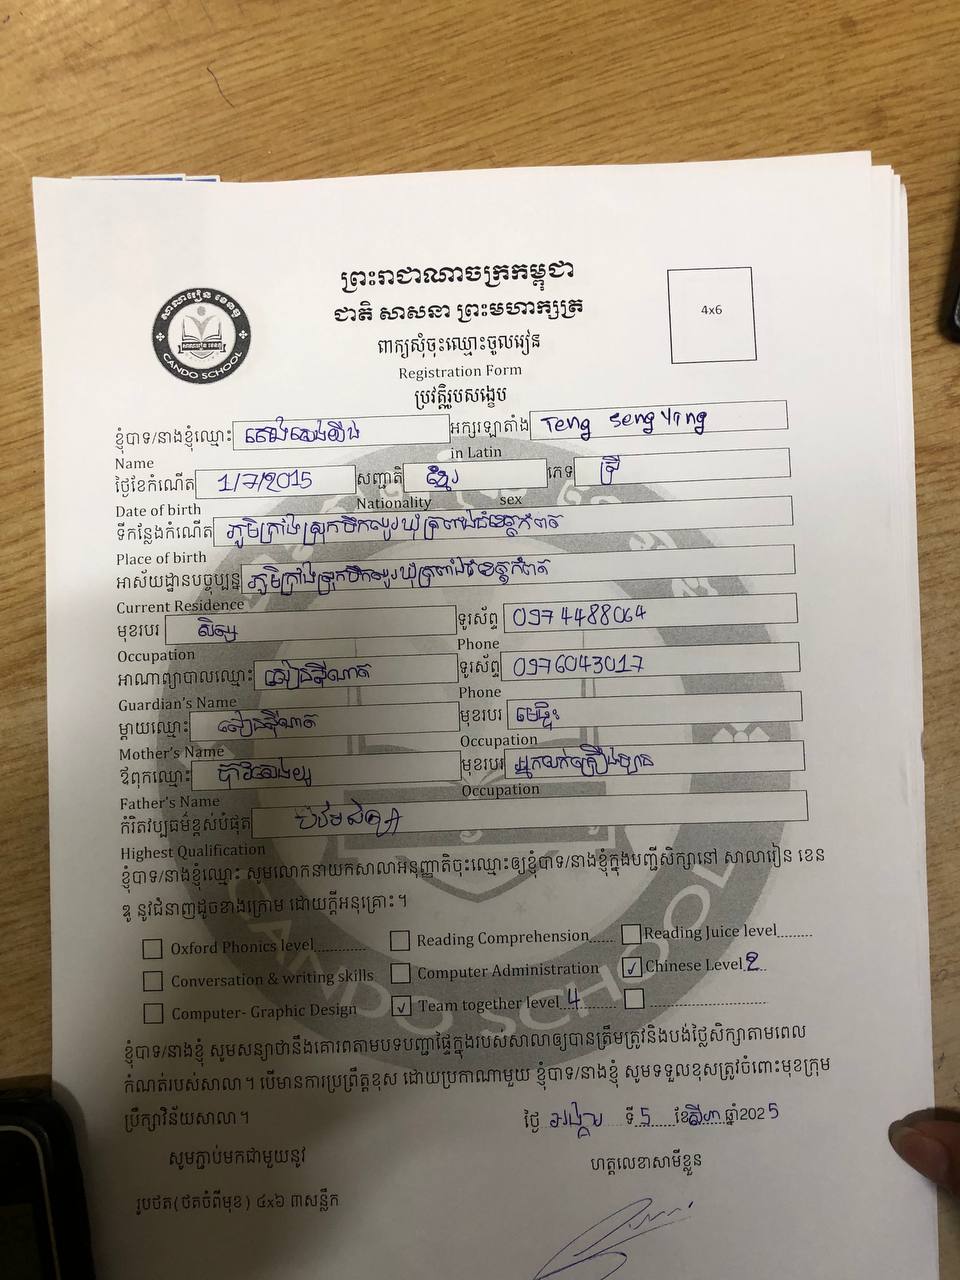 ព្រះរាជាណាចក្រកម្ពុជា
ជាតិ សាសនា ព្រះមហាក្សត្រ
ពាក្យសុំចុះឈ្មោះចូលរៀន
Registration Form
ប្រវត្តិរូបសង្ខេប
សាលារៀន ខេនឌូ
CANDO SCHOOL
4x6
ខ្ញុំបាទ/នាងខ្ញុំឈ្មោះ អក្សរឡាតាំង Teng Seng Ying
Name in Latin
ថ្ងៃខែកំណើត 1/7/2015 សញ្ជាតិ ខ្មែរ ភេទ ស្រី
Date of birth Nationality sex
ទីកន្លែងកំណើត ភូមិក្រាំងស្រុកទឹកឈូរឃុំត្រពាំងធំខេត្តកំពត
Place of birth
អាស័យដ្ឋានបច្ចុប្បន្ន ភូមិក្រាំងស្រុកទឹកឈូរឃុំត្រពាំងធំខេត្តកំពត
Current Residence
មុខរបរ សិស្ស ទូរស័ព្ទ 0974488064
Occupation Phone
អាណាព្យាបាលឈ្មោះ ទូរស័ព្ទ 0976043017
Guardian's Name Phone
ម្ដាយឈ្មោះ មុខរបរ មេផ្ទះ
Mother's Name Occupation
ឪពុកឈ្មោះ មុខរបរ អ្នកលក់គ្រឿងឡាន
Father's Name Occupation
កំរិតវប្បធម៌ខ្ពស់បំផុត
Highest Qualification
ខ្ញុំបាទ/នាងខ្ញុំឈ្មោះ សូមលោកនាយកសាលាអនុញ្ញាតិចុះឈ្មោះឲ្យខ្ញុំបាទ/នាងខ្ញុំក្នុងបញ្ជីសិក្សានៅ សាលារៀន ខេន
ឌូ នូវជំនាញដូចខាងក្រោម ដោយក្ដីអនុគ្រោះ។
Oxford Phonics level............ Reading Comprehension...... Reading Juice level.........
Conversation & writing skills Computer Administration ✓ Chinese Level 2
Computer- Graphic Design ✓ Team together level 4 ..............................
ខ្ញុំបាទ/នាងខ្ញុំ សូមសន្យាថានឹងគោរពតាមបទបញ្ជាផ្ទៃក្នុងរបស់សាលាឲ្យបានត្រឹមត្រូវនិងបង់ថ្លៃសិក្សាតាមពេល
កំណត់របស់សាលា។ បើមានការប្រព្រឹត្តខុស ដោយប្រកាណាមួយ ខ្ញុំបាទ/នាងខ្ញុំ សូមទទួលខុសត្រូវចំពោះមុខក្រុម
ប្រឹក្សាវិន័យសាលា។
ថ្ងៃ អង្គារ ទី 5 ខែ សីហា ឆ្នាំ2025
សូមភ្ជាប់មកជាមួយនូវ ហត្ថលេខាសាមីខ្លួន
រូបថត(ថតចំពីមុខ) ៤x៦ ៣សន្លឹក